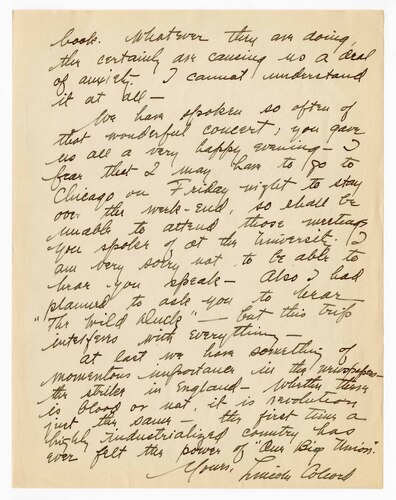 book. Whatever they are doing,
they certainly are causing us a deal
of anxiety. I cannot understand
it at all —
We have spoken so often of
that wonderful concert; you gave
us all a very happy evening — I
fear that I may have to go to
Chicago on Friday night to stay
over the week-end, so shall be
unable to attend those meetings
you spoke of at the University. I
am very sorry not to be able to
hear you speak — Also I had
planned to ask you to hear
"The Wild Duck" — but this trip
interferes with everything.
At last we have something of
momentous importance in the newspapers —
the strikes in England — Whether there
is blood or not, it is revolution
just the same — the first time a
highly industrialized country has
ever felt the power of "One Big Union".
Yours,
Lincoln Colcord